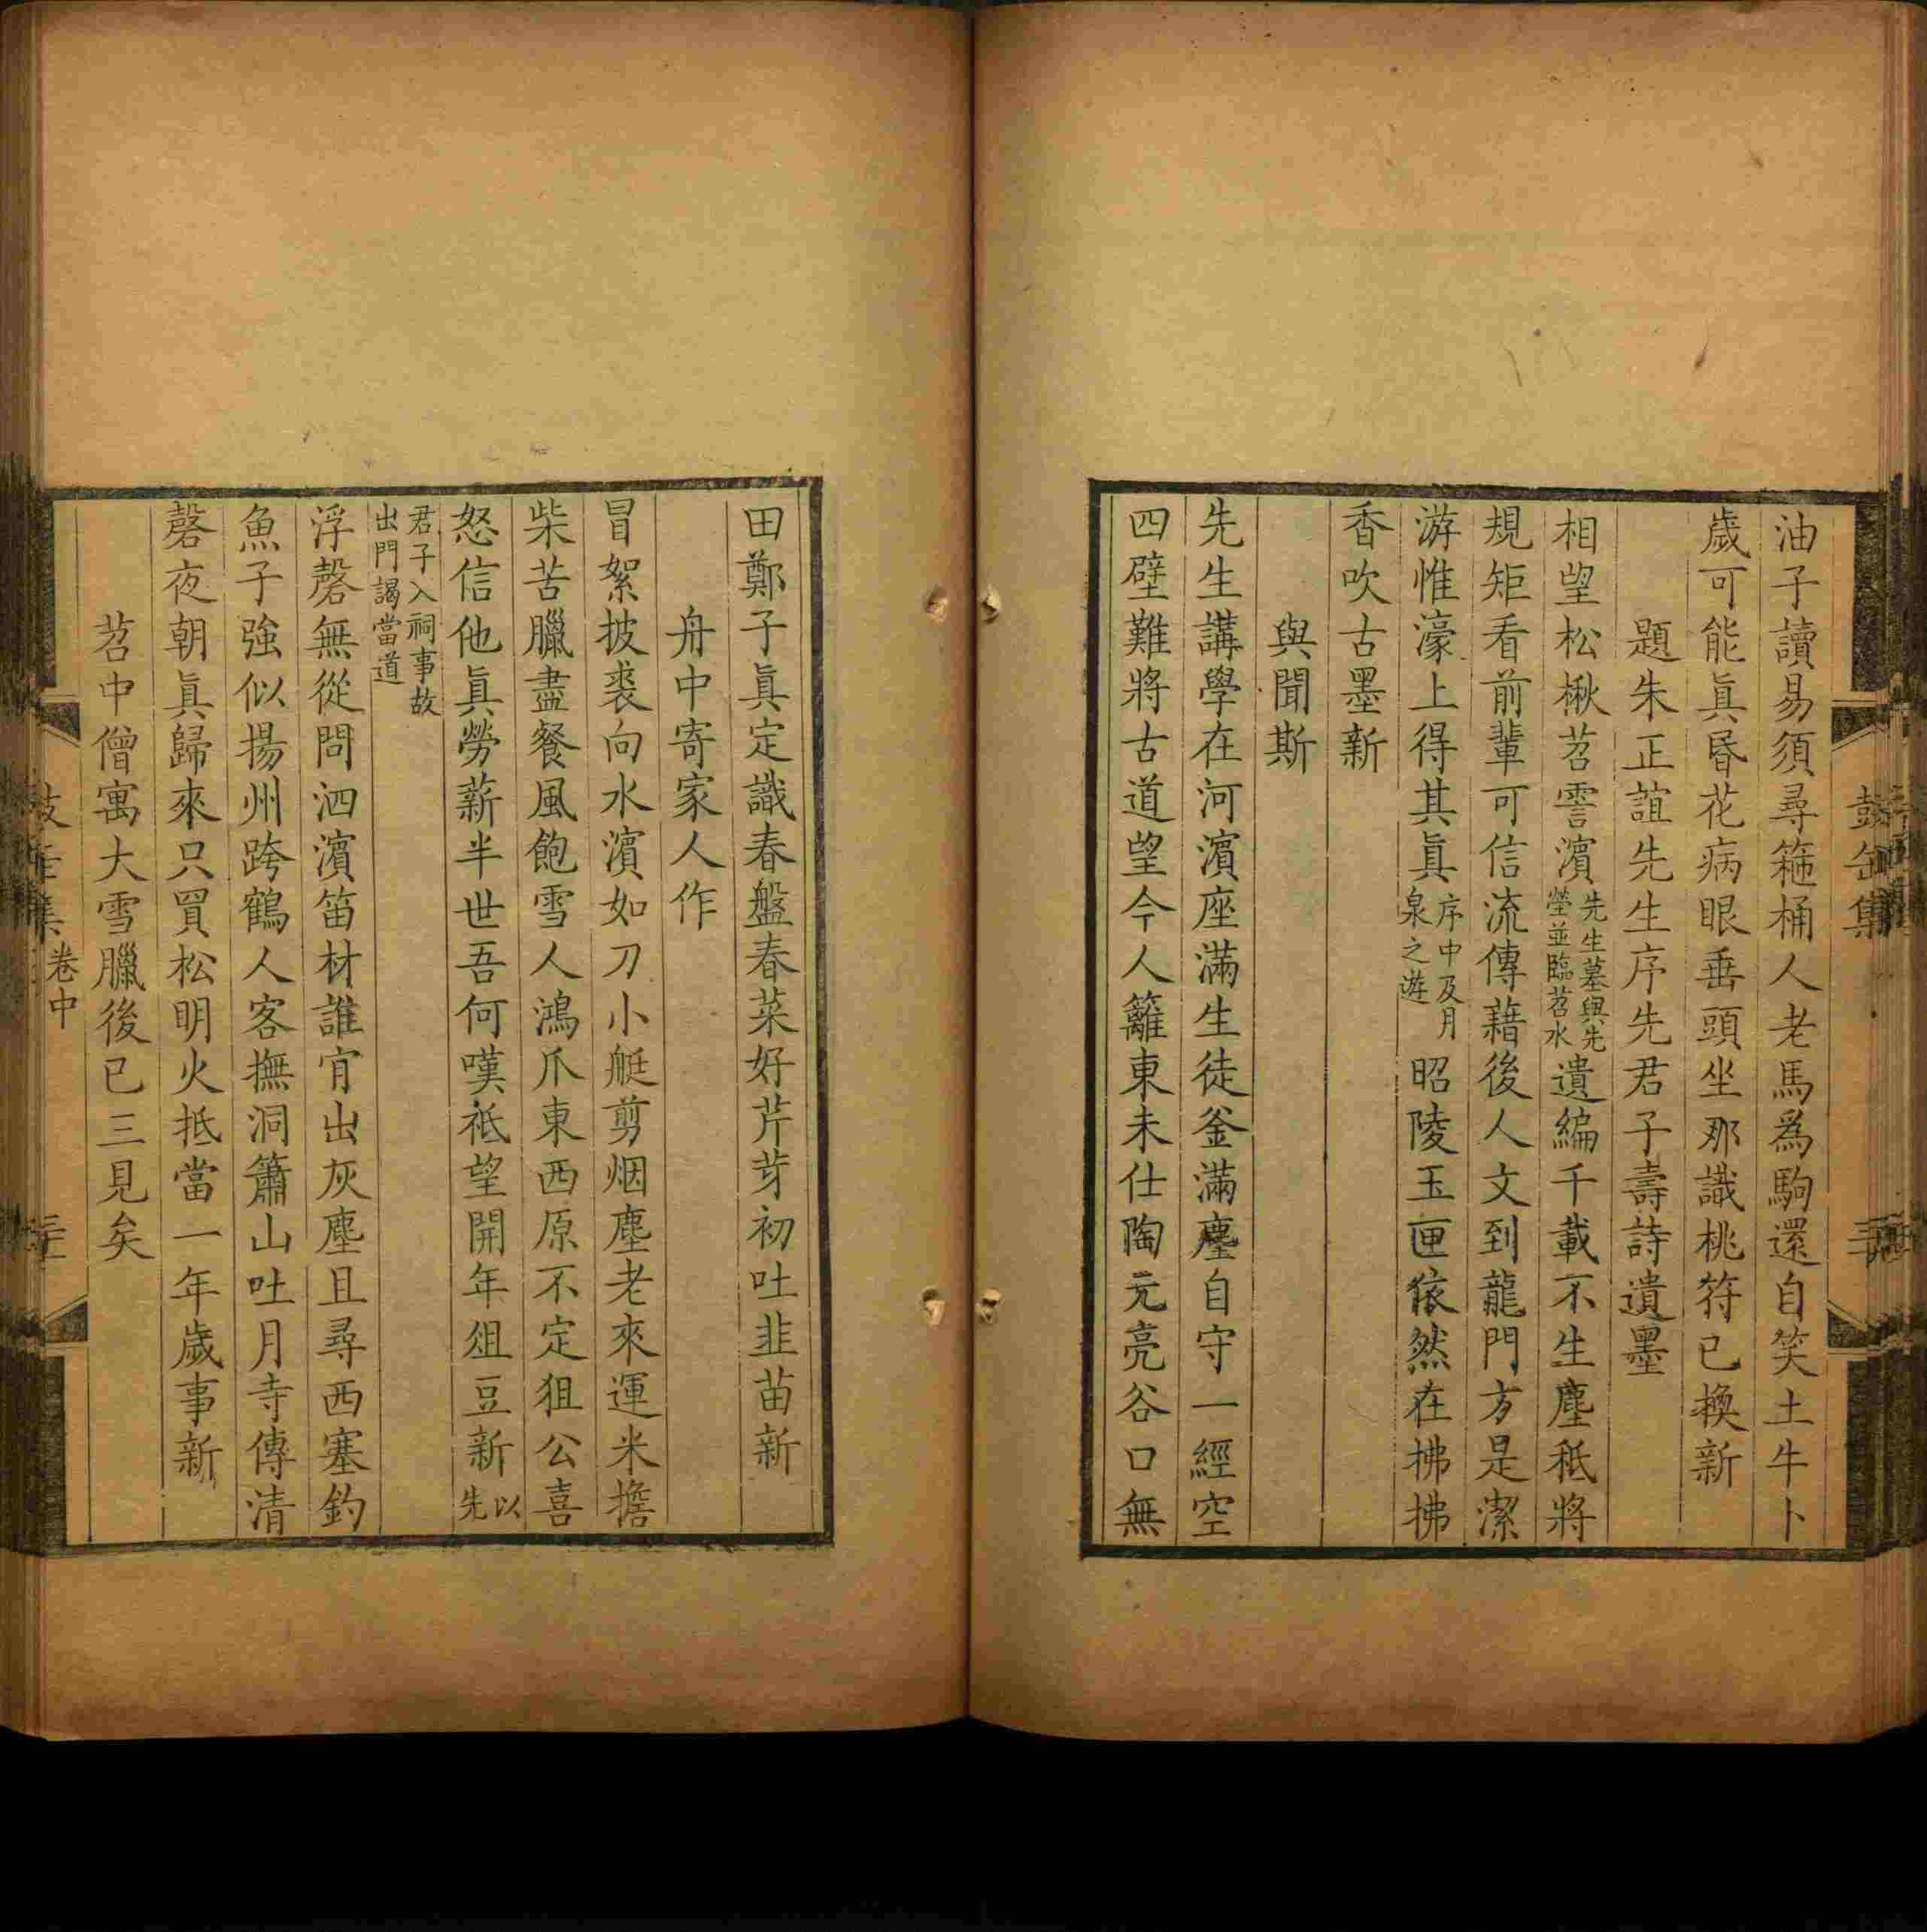 油子讀易須尋箍桶人老馬爲駒還自笑土牛卜
歲可能眞昏花病眼垂頭坐那識桃符已換新
題朱正誼先生序先君子壽詩遺墨
相望松楸苕霅濱先生墓與先塋並臨苕水遺編千載不生塵秪將
規矩看前輩可信流傳藉後人文到龍門方是潔
游惟濠上得其眞序中及月泉之遊昭陵玉匣依然在拂拂
香吹古墨新
與聞斯
先生講學在河濱座滿生徒釜滿塵自守一經空
四壁難將古道望今人籬東未仕陶元亮谷口無
田鄭子眞定識春盤春菜好芹芽初吐韭苗新
舟中寄家人作
冒絮披裘向水濱如刀小艇剪烟塵老來運米擔
柴苦臘盡餐風飽雪人鴻爪東西原不定狙公喜
怒信他眞勞薪半世吾何嘆祇望開年俎豆新以先
君子入祠事故出門謁當道
浮磬無從問泗濱笛材誰肯出灰塵且尋西塞釣
魚子強似揚州跨鶴人客撫洞簫山吐月寺傳清
磬夜朝眞歸來只買松明火抵當一年歲事新
苕中僧寓大雪臘後已三見矣
卷中